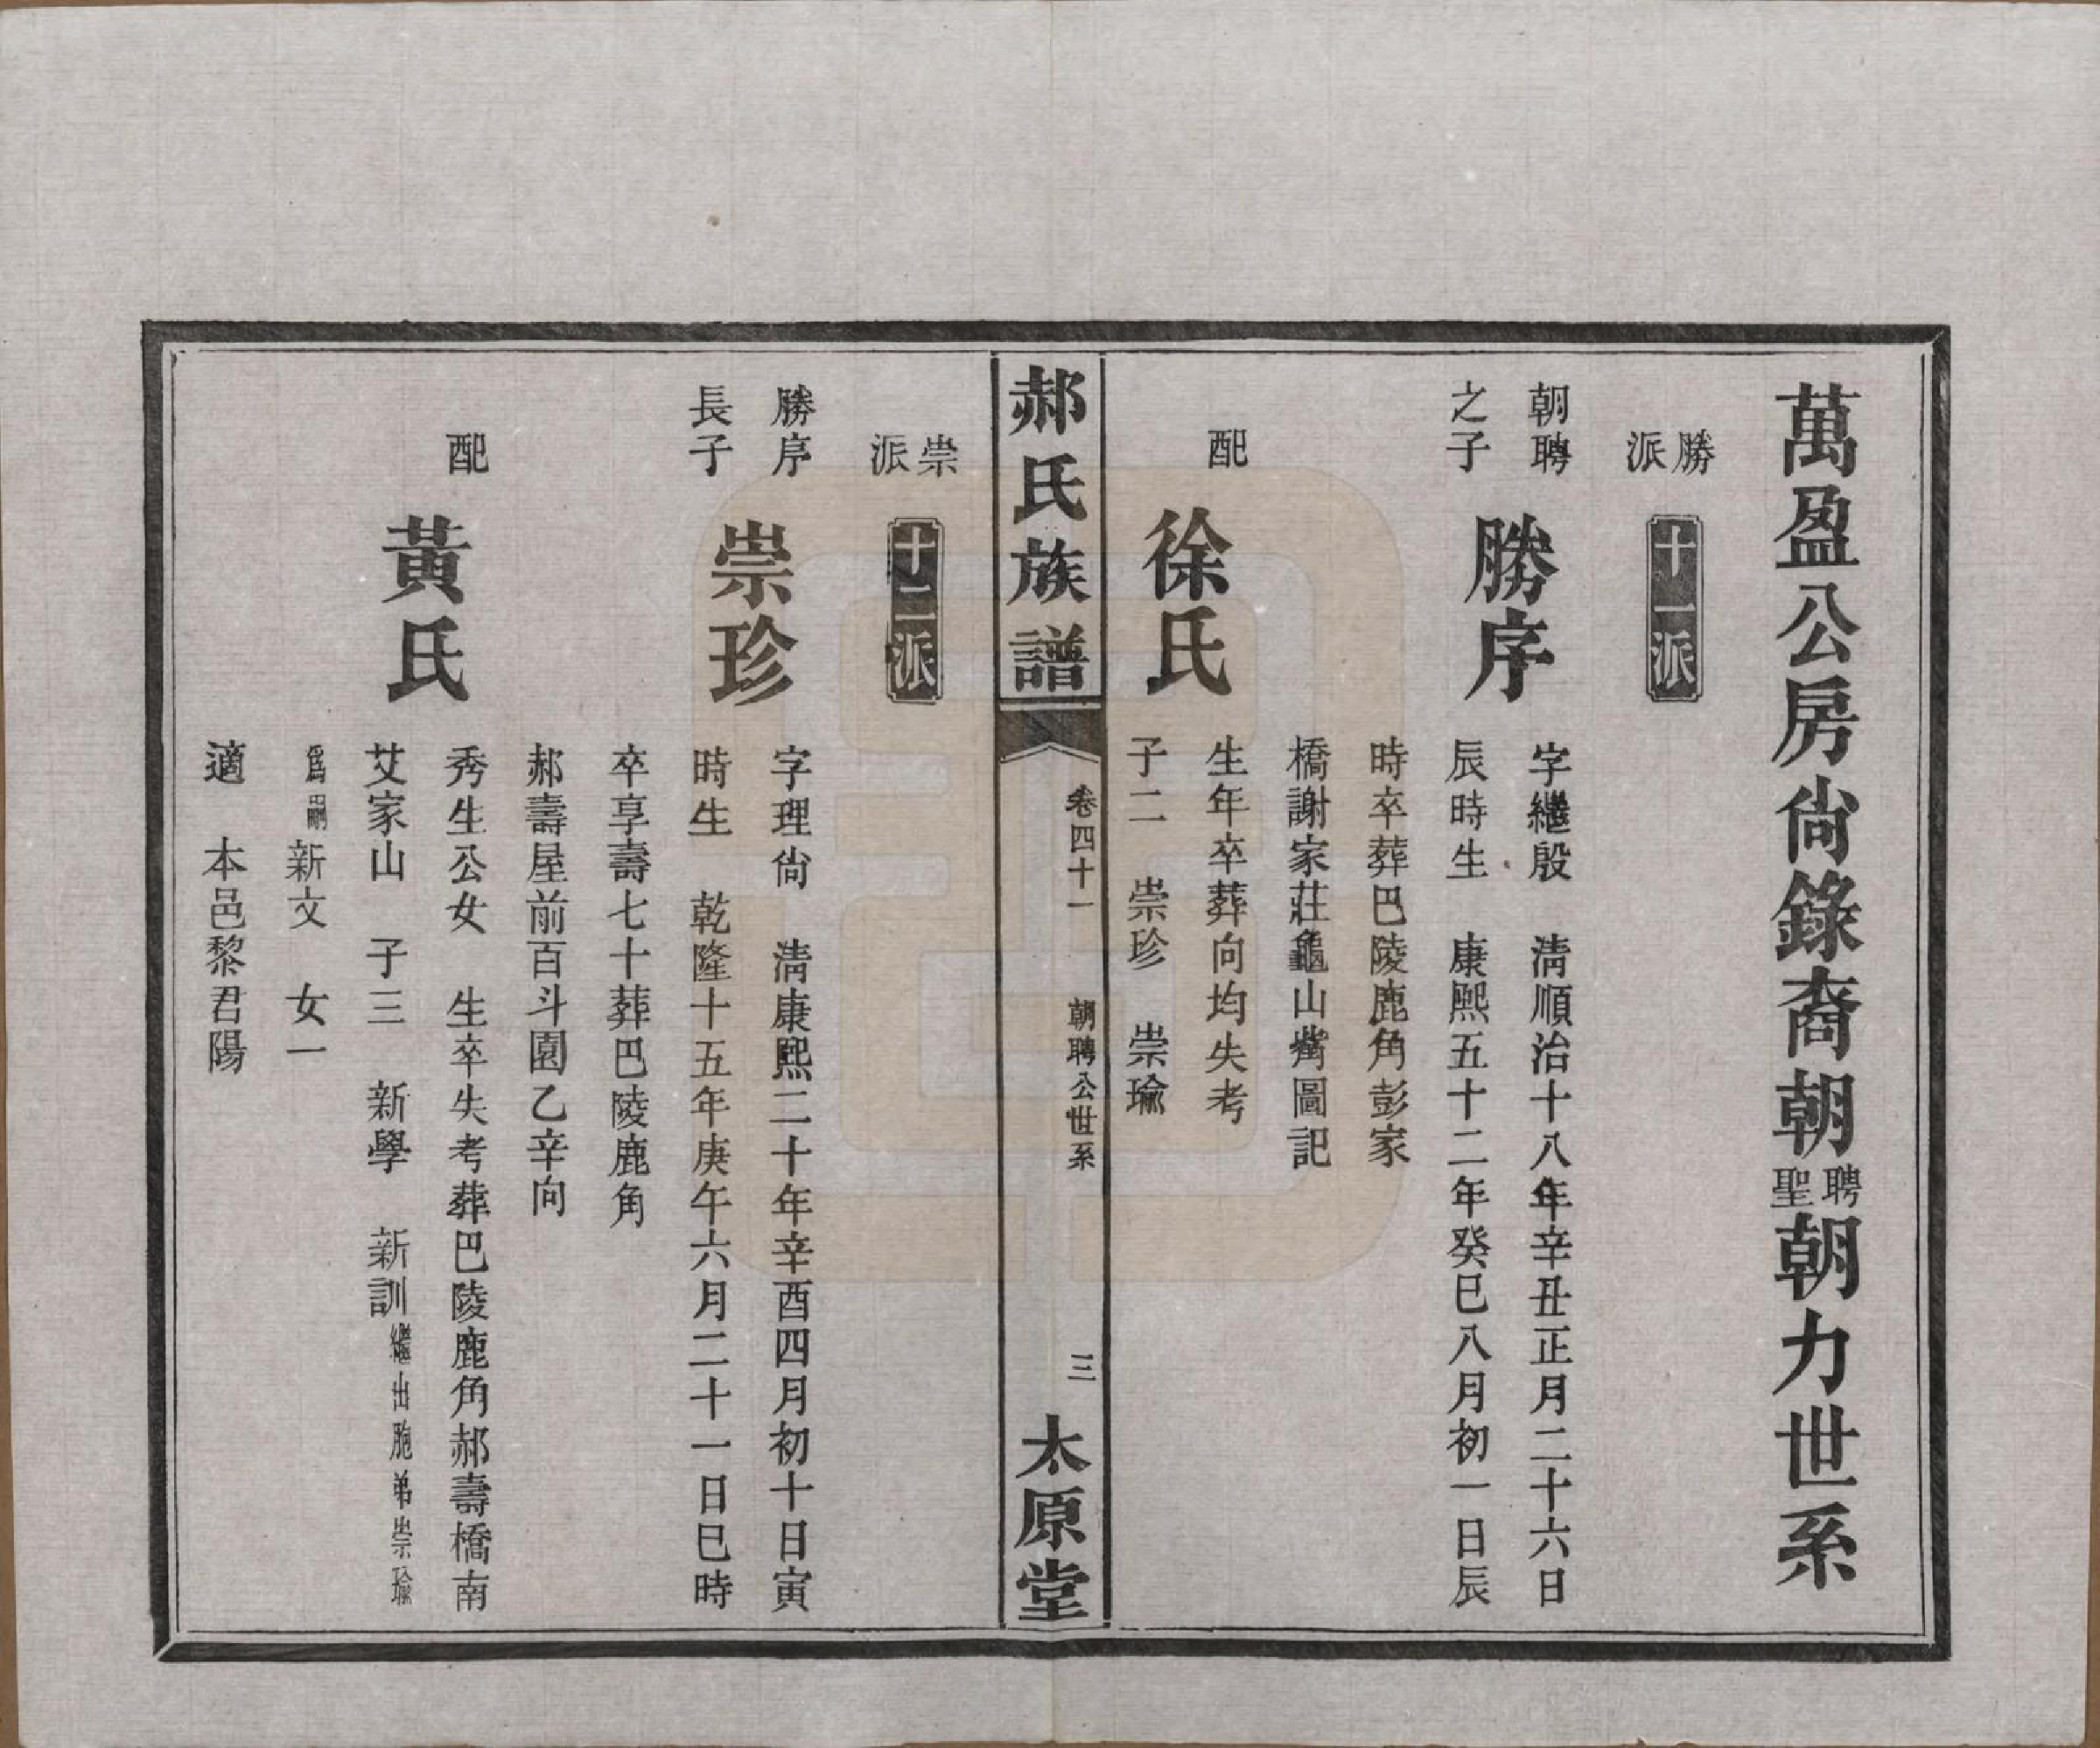 萬盈公房尙錄裔朝聘聖朝力世系
勝派
十一派
朝聘之子
勝序
字繼殷　淸順治十八年辛丑正月二十六日
辰時生　康熙五十二年癸巳八月初一日辰
時卒葬巴陵鹿角彭家
橋謝家莊龜山嘴圖記
配
徐氏
生年卒葬向均失考
子二　崇珍　崇瑜
郝氏族譜
卷四十一
朝聘公世系
三
太原堂
崇派
十二派
勝序長子
崇珍
字理尙　淸康熙二十年辛酉四月初十日寅
時生　乾隆十五年庚午六月二十一日巳時
卒享壽七十葬巴陵鹿角
郝壽屋前百斗園乙辛向
配
黃氏
秀生公女　生卒失考葬巴陵鹿角郝壽橋南
艾家山　子三　新學　新訓繼出胞弟崇瑜
爲嗣新文　女一
適　本邑黎君陽